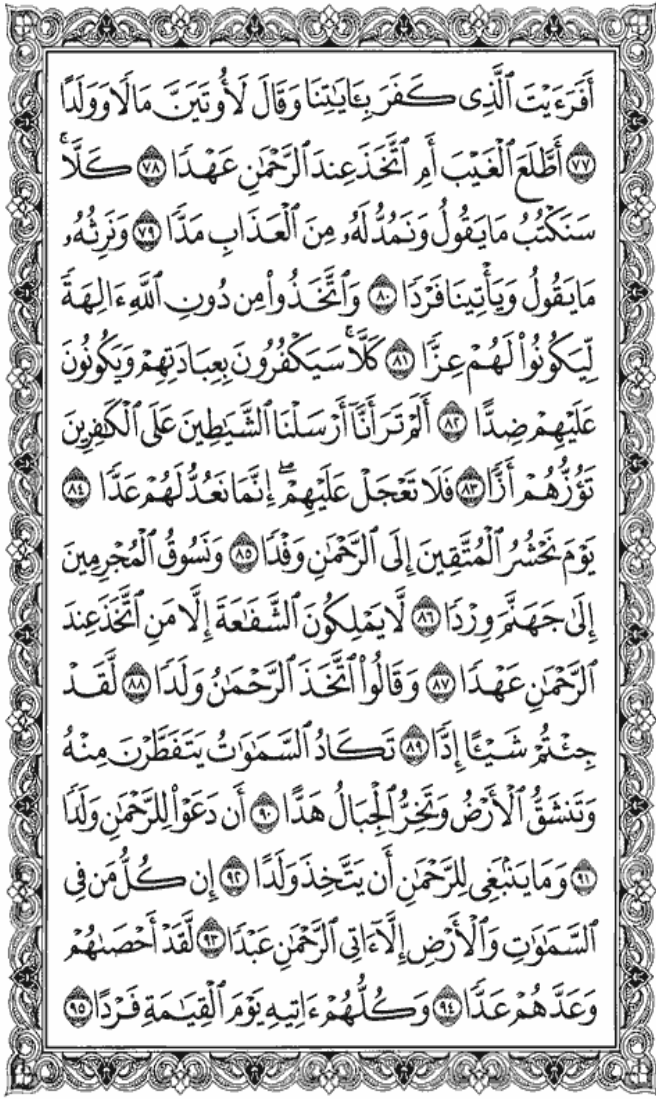 أَفَرَءَيْتَ ٱلَّذِى كَفَرَ بِـَٔايَـٰتِنَا وَقَالَ لَأُوتَيَنَّ مَالًا وَوَلَدًا
٧٧ أَطَّلَعَ ٱلْغَيْبَ أَمِ ٱتَّخَذَ عِندَ ٱلرَّحْمَـٰنِ عَهْدًا ٧٨ كَلَّا ۚ
سَنَكْتُبُ مَا يَقُولُ وَنَمُدُّ لَهُۥ مِنَ ٱلْعَذَابِ مَدًّا ٧٩ وَنَرِثُهُۥ
مَا يَقُولُ وَيَأْتِينَا فَرْدًا ٨٠ وَٱتَّخَذُوا۟ مِن دُونِ ٱللَّهِ ءَالِهَةً
لِّيَكُونُوا۟ لَهُمْ عِزًّا ٨١ كَلَّا ۚ سَيَكْفُرُونَ بِعِبَادَتِهِمْ وَيَكُونُونَ
عَلَيْهِمْ ضِدًّا ٨٢ أَلَمْ تَرَ أَنَّآ أَرْسَلْنَا ٱلشَّيَـٰطِينَ عَلَى ٱلْكَـٰفِرِينَ
تَؤُزُّهُمْ أَزًّا ٨٣ فَلَا تَعْجَلْ عَلَيْهِمْ ۖ إِنَّمَا نَعُدُّ لَهُمْ عَدًّا ٨٤
يَوْمَ نَحْشُرُ ٱلْمُتَّقِينَ إِلَى ٱلرَّحْمَـٰنِ وَفْدًا ٨٥ وَنَسُوقُ ٱلْمُجْرِمِينَ
إِلَىٰ جَهَنَّمَ وِرْدًا ٨٦ لَّا يَمْلِكُونَ ٱلشَّفَـٰعَةَ إِلَّا مَنِ ٱتَّخَذَ عِندَ
ٱلرَّحْمَـٰنِ عَهْدًا ٨٧ وَقَالُوا۟ ٱتَّخَذَ ٱلرَّحْمَـٰنُ وَلَدًا ٨٨ لَّقَدْ
جِئْتُمْ شَيْـًٔا إِدًّا ٨٩ تَكَادُ ٱلسَّمَـٰوَٰتُ يَتَفَطَّرْنَ مِنْهُ
وَتَنشَقُّ ٱلْأَرْضُ وَتَخِرُّ ٱلْجِبَالُ هَدًّا ٩٠ أَن دَعَوْا۟ لِلرَّحْمَـٰنِ وَلَدًا
٩١ وَمَا يَنۢبَغِى لِلرَّحْمَـٰنِ أَن يَتَّخِذَ وَلَدًا ٩٢ إِن كُلُّ مَن فِى
ٱلسَّمَـٰوَٰتِ وَٱلْأَرْضِ إِلَّآ ءَاتِى ٱلرَّحْمَـٰنِ عَبْدًا ٩٣ لَّقَدْ أَحْصَىٰهُمْ
وَعَدَّهُمْ عَدًّا ٩٤ وَكُلُّهُمْ ءَاتِيهِ يَوْمَ ٱلْقِيَـٰمَةِ فَرْدًا ٩٥